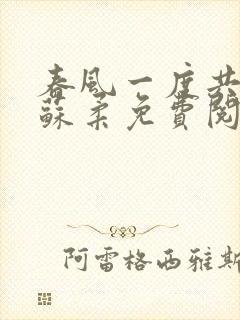 春風一度共
蘇柔免費閱
阿雷格西雅斯